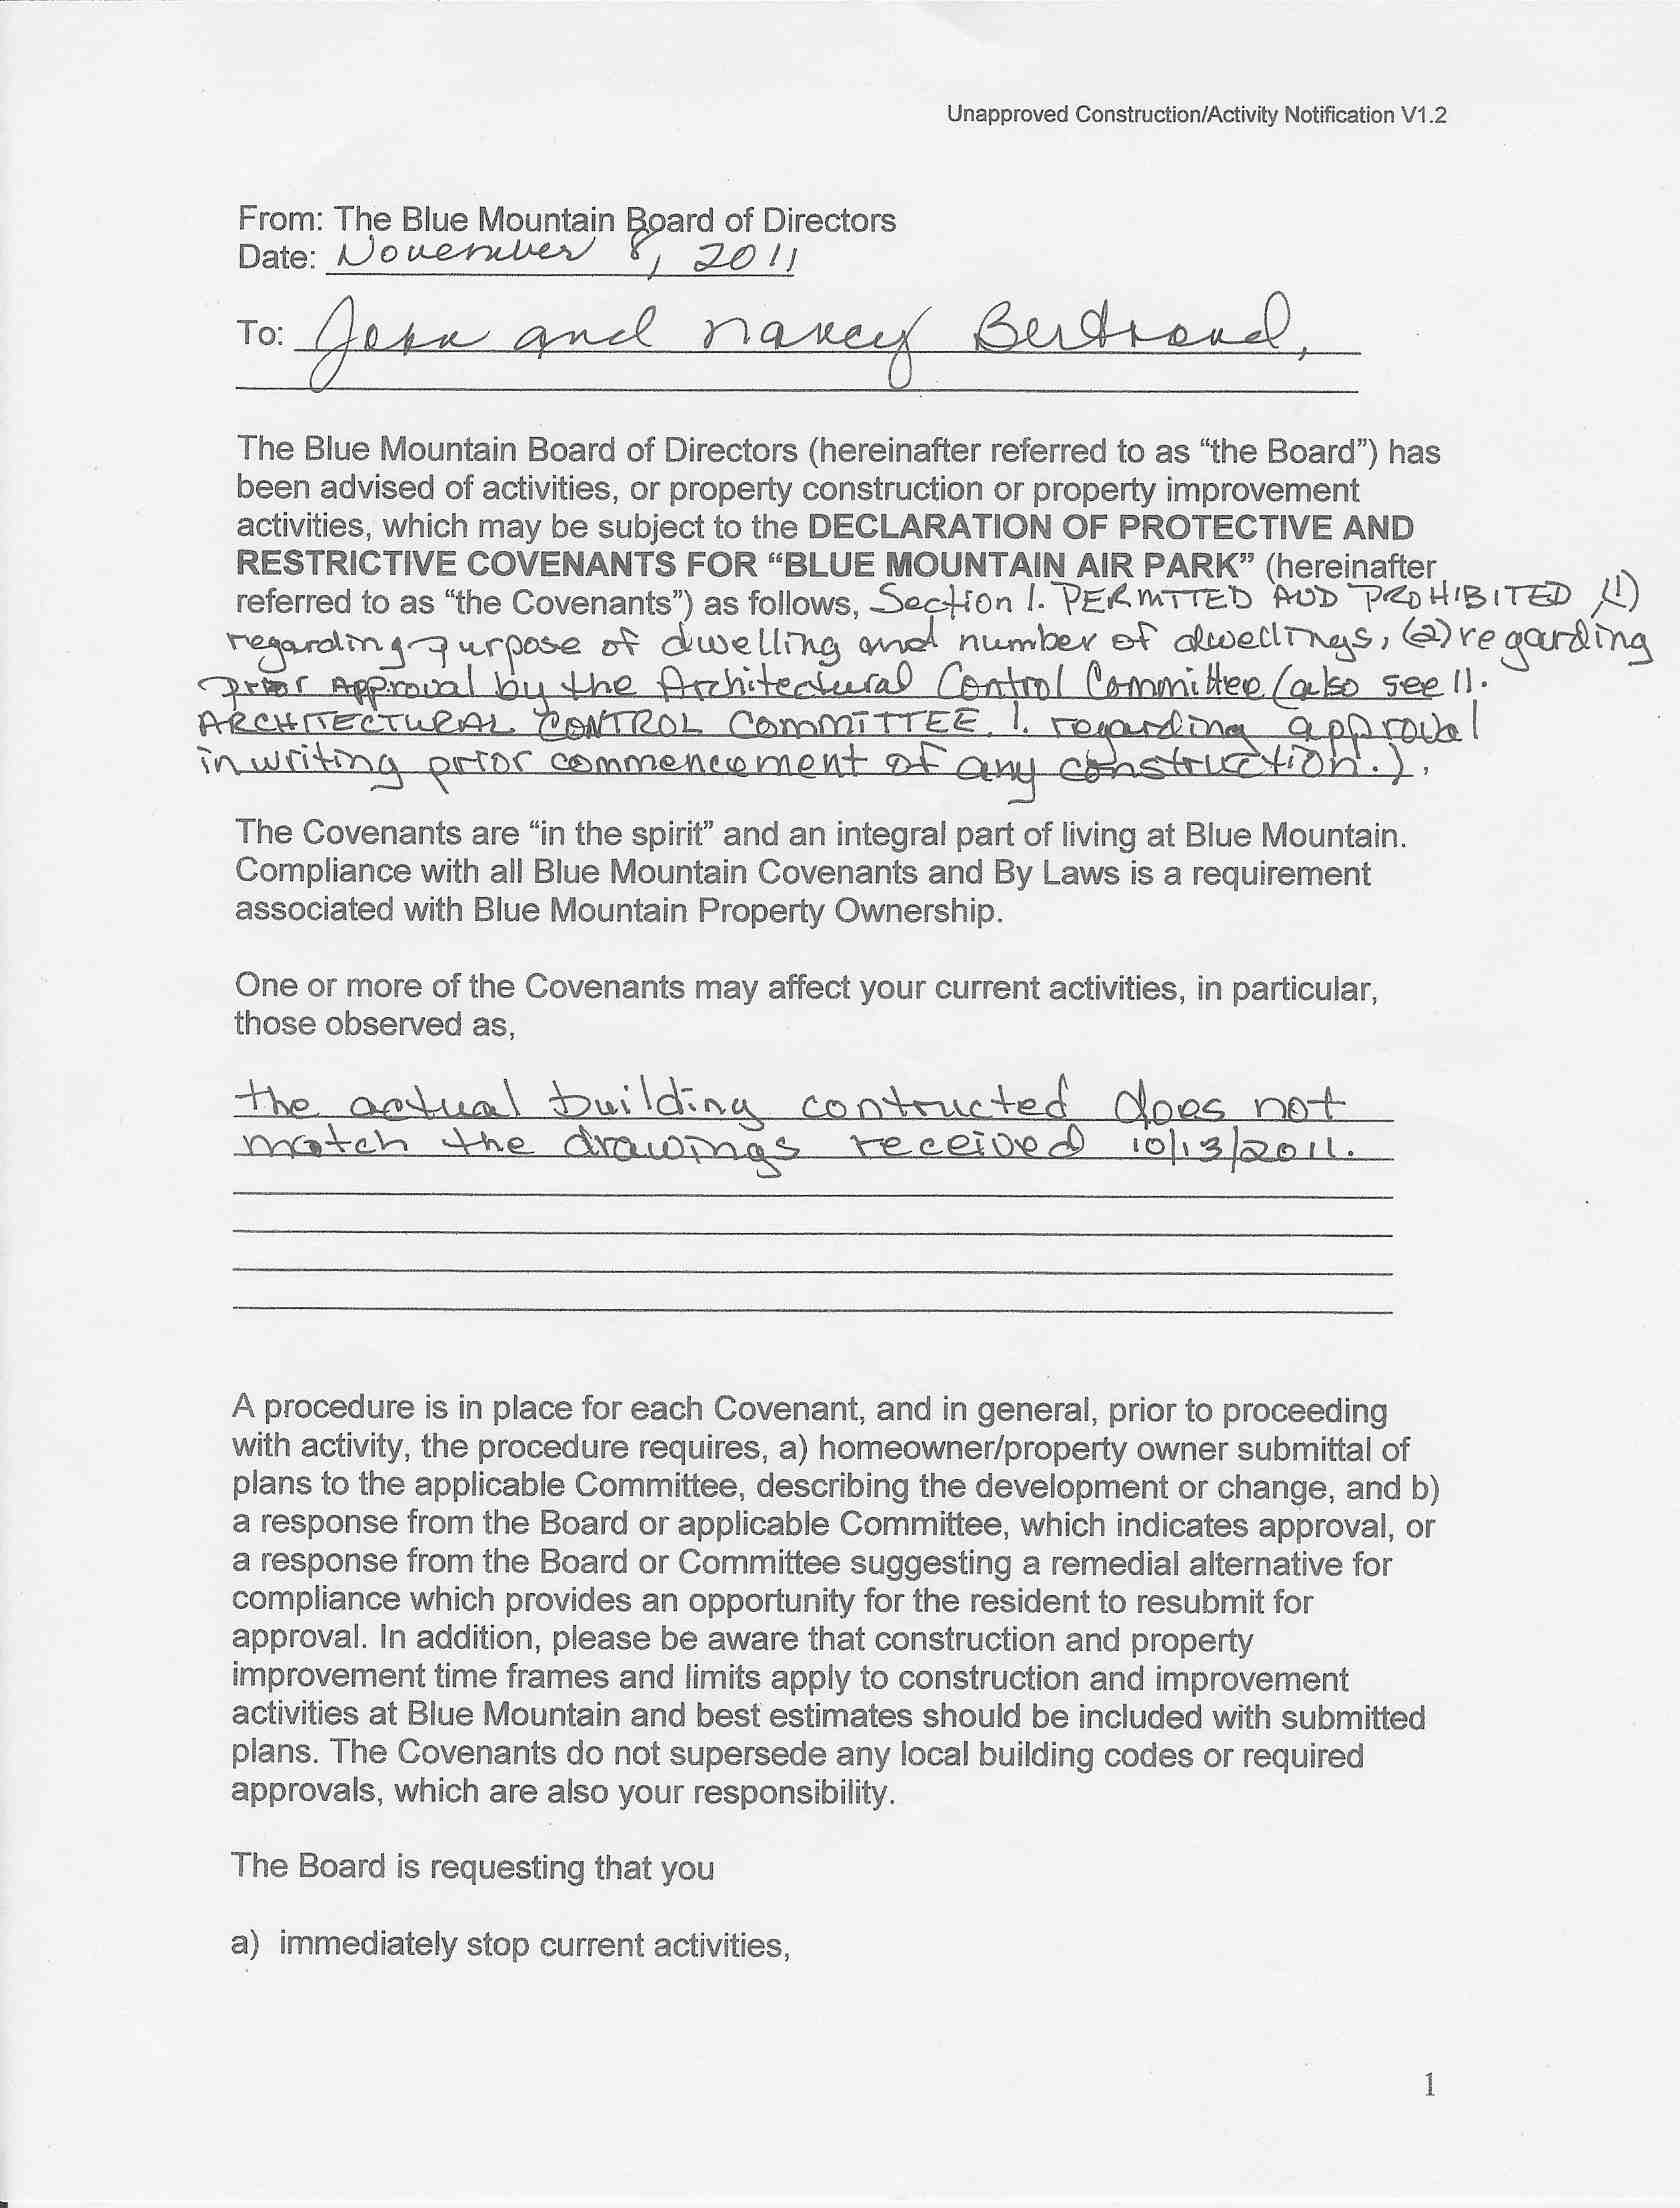 Unapproved Construction/Activity Notification V1.2
From: The Blue Mountain Board of Directors
Date: November 8, 2011
To: John and Nancy Bertrand,
The Blue Mountain Board of Directors (hereinafter referred to as “the Board”) has
been advised of activities, or property construction or property improvement
activities, which may be subject to the DECLARATION OF PROTECTIVE AND
RESTRICTIVE COVENANTS FOR “BLUE MOUNTAIN AIR PARK” (hereinafter
referred to as “the Covenants”) as follows, Section I. PERMITTED AND PROHIBITED (1)
regarding purpose of dwelling and number of dwellings, (2) regarding
prior Approval by the Architectural Control Committee (also see II.
ARCHITECTURAL CONTROL COMMITTEE, 1. regarding approval
in writing prior commencement of any construction.).
The Covenants are “in the spirit” and an integral part of living at Blue Mountain.
Compliance with all Blue Mountain Covenants and By Laws is a requirement
associated with Blue Mountain Property Ownership.
One or more of the Covenants may affect your current activities, in particular,
those observed as,
the actual building contructed does not
match the drawings received 10/13/2011.
A procedure is in place for each Covenant, and in general, prior to proceeding
with activity, the procedure requires, a) homeowner/property owner submittal of
plans to the applicable Committee, describing the development or change, and b)
a response from the Board or applicable Committee, which indicates approval, or
a response from the Board or Committee suggesting a remedial alternative for
compliance which provides an opportunity for the resident to resubmit for
approval. In addition, please be aware that construction and property
improvement time frames and limits apply to construction and improvement
activities at Blue Mountain and best estimates should be included with submitted
plans. The Covenants do not supersede any local building codes or required
approvals, which are also your responsibility.
The Board is requesting that you
a) immediately stop current activities,
1